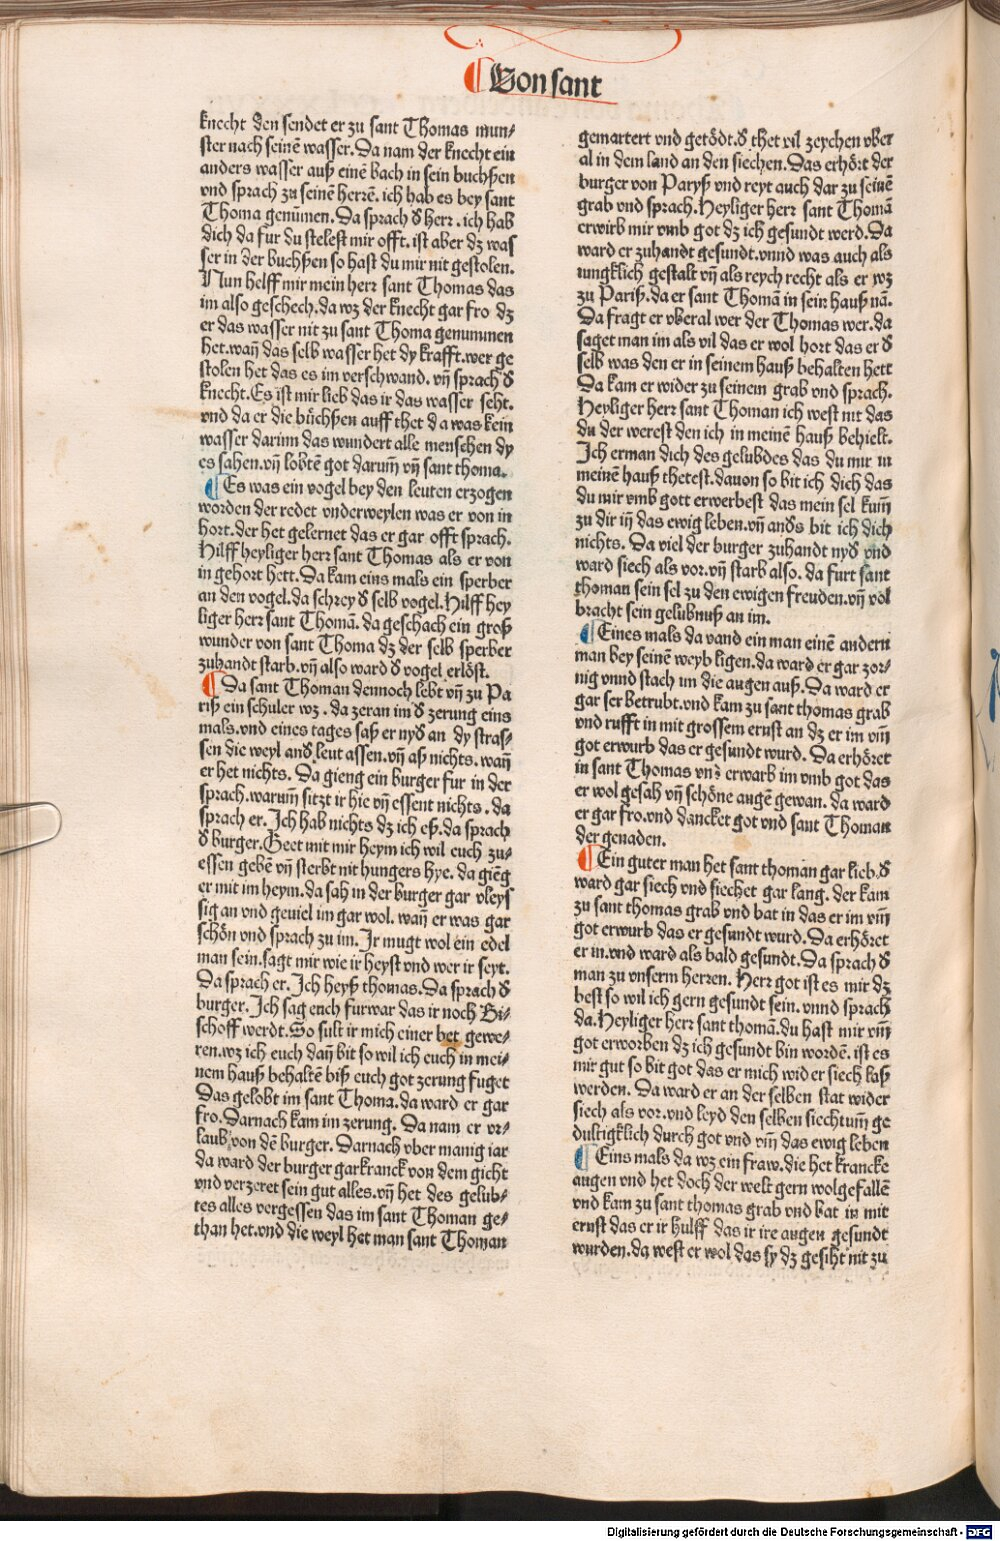 Von sant
knecht den sendet er zu sant Thomas mun⸗
ster nach seinē wasser. Da nam der knecht ein
anders wasser auß einē bach in sein buchßen
vnd sprach zu seinē herrē. ich hab es bey sant
Thoma genūmen. Da sprach d̓ herr. ich hab
dich da fur du stelest mir offt. ist aber dz was
ser in der buchßen so hast du mir nit gestolen.
Nun helff mir mein herr sant Thomas das
im also geschech. da wz der knecht gar fro dz
er das wasser nit zu sant Thoma genummen
het. wañ das selb wasser het dy krafft. wer ge
stolen het das es im verschwand. vñ sprach d̓
knecht. Es ist mir lieb das ir das wasser seht.
vnd da er die bůchßen auff thet da was kein
wasser darinn das wundert alle menschen dy
es sahen. vñ lobtē got darum̄ vñ sant thoma.
¶ Es was ein vogel bey den leuten erzogen
worden der redet vnderweylen was er von in
hort. der het gelernet das er gar offt sprach.
Hilff heyliger herr sant Thomas als er von
in gehort hett. Da kam eins mals ein sperber
an den vogel. da schrey d̓ selb vogel. Hilff hey
liger herr sant Thomā. da geschach ein groß
wunder von sant Thoma dz der selb sperber
zuhandt starb. vñ also ward d̓ vogel erlöst.
¶ Da sant Thoman dennoch lebt vñ zu Pa
riß ein schuler wz. da zeran im d̓ zerung eins
mals. vnd eines tages saß er nyd̓ an dy stras⸗
sen die weyl and̓ leut assen. vñ aß nichts. wañ
er het nichts. Da gieng ein burger fur in der
sprach. warum̄ sitzt ir hie vñ essent nichts. da
sprach er. Ich hab nichts dz ich eß. da sprach
d̓ burger. Geet mit mir heym ich wil euch zu⸗
essen gebē vñ sterbt nit hungers hye. da giēg
er mit im heym. da sah in der burger gar vleys
sig an vnd geuiel im gar wol. wañ er was gar
schön vnd sprach zu im. Ir mugt wol ein edel
man sein. sagt mir wie ir heyst vnd wer ir seyt.
Da sprach er. Ich heyß thomas. Da sprach d̓
burger. Ich sag euch furwar das ir noch Bi⸗
schoff werdt. So sult ir mich einer bet gewe⸗
ren. wz ich euch dañ bit so wil ich euch in mei⸗
nem hauß behaltē biß euch got zerung fuget
Das gelobt im sant Thoma. da ward er gar
fro. Darnach kam im zerung. Da nam er vr⸗
laub von dē burger. Darnach vber manig iar
da ward der burger gar kranck von dem gicht
vnd verzeret sein gut alles. vñ het des gelub⸗
tes alles vergessen das im sant Thoman ge⸗
than het. vnd die weyl het man sant Thoman
gemartert vnd getödt. d̓ thet vil zeychen vber
al in dem land an den siechen. Das erhört der
burger von Paryß vnd reyt auch dar zu seinē
grab vnd sprach. Heyliger herr sant Thomā
erwirb mir vmb got dz ich gesundt werd. Da
ward er zuhandt gesundt. vnnd was auch als
iungklich gestalt vñ als reych recht als er wz
zu Pariß. da er sant Thomā in sein hauß nā.
Da fragt er vberal wer der Thomas wer. da
saget man im als vil das er wol hort das er d̓
selb was den er in seinem hauß behalten hett
Da kam er wider zu seinem grab vnd sprach.
Heyliger herr sant Thoman ich west nit das
du der werest den ich in meinē hauß behielt.
Ich erman dich des gelubdes das du mir in
meinē hauß thetest. dauon so bit ich dich das
du mir vmb gott erwerbest das mein sel kum̄
zu dir iñ das ewig leben. vñ and̓s bit ich dich
nichts. Da viel der burger zuhandt nyd̓ vnd
ward siech als vor. vñ starb also. da furt sant
thoman sein sel zu den ewigen freuden. vñ vol
bracht sein gelubnuß an im.
¶ Eines mals da vand ein man einē andern
man bey seinē weyb ligen. da ward er gar zor⸗
nig vnnd stach im die augen auß. Da ward er
gar ser betrubt. vnd kam zu sant thomas grab
vnd rufft in mit grossem ernst an dz er im vm̄
got erwurb das er gesundt wurd. Da erhöret
in sant Thomas vnd erwarb im vmb got das
er wol gesah vñ schöne augē gewan. da ward
er gar fro. vnd dancket got vnd sant Thoman
der genaden.
¶ Ein guter man het sant thoman gar lieb. d̓
ward gar siech vnd siechet gar lang. der kam
zu sant thomas grab vnd bat in das er im vm̄
got erwurb das er gesundt wurd. Da erhöret
er in. vnd ward als bald gesundt. Da sprach d̓
man zu vnserm herren. Herr got ist es mir dz
best so wil ich gern gesundt sein. vnnd sprach
da. Heyliger herr sant thomā. du hast mir vm̄
got erworben dz ich gesundt bin wordē. ist es
mir gut so bit got das er mich wider siech laß
werden. Da ward er an der selben stat wider
siech als vor. vnd leyd den selben siechtum̄ ge
dultigklich durch got vnd vm̄ das ewig leben
¶ Eins mals da wz ein fraw. die het krancke
augen vnd het doch der welt gern wolgefallē
vnd kam zu sant thomas grab vnd bat in mit
ernst das er ir hulff das ir ire augen gesundt
wurden. da west er wol das sy dz gesiht nit zu
Digitalisierung gefördert durch die Deutsche Forschungsgemeinschaft - DFG